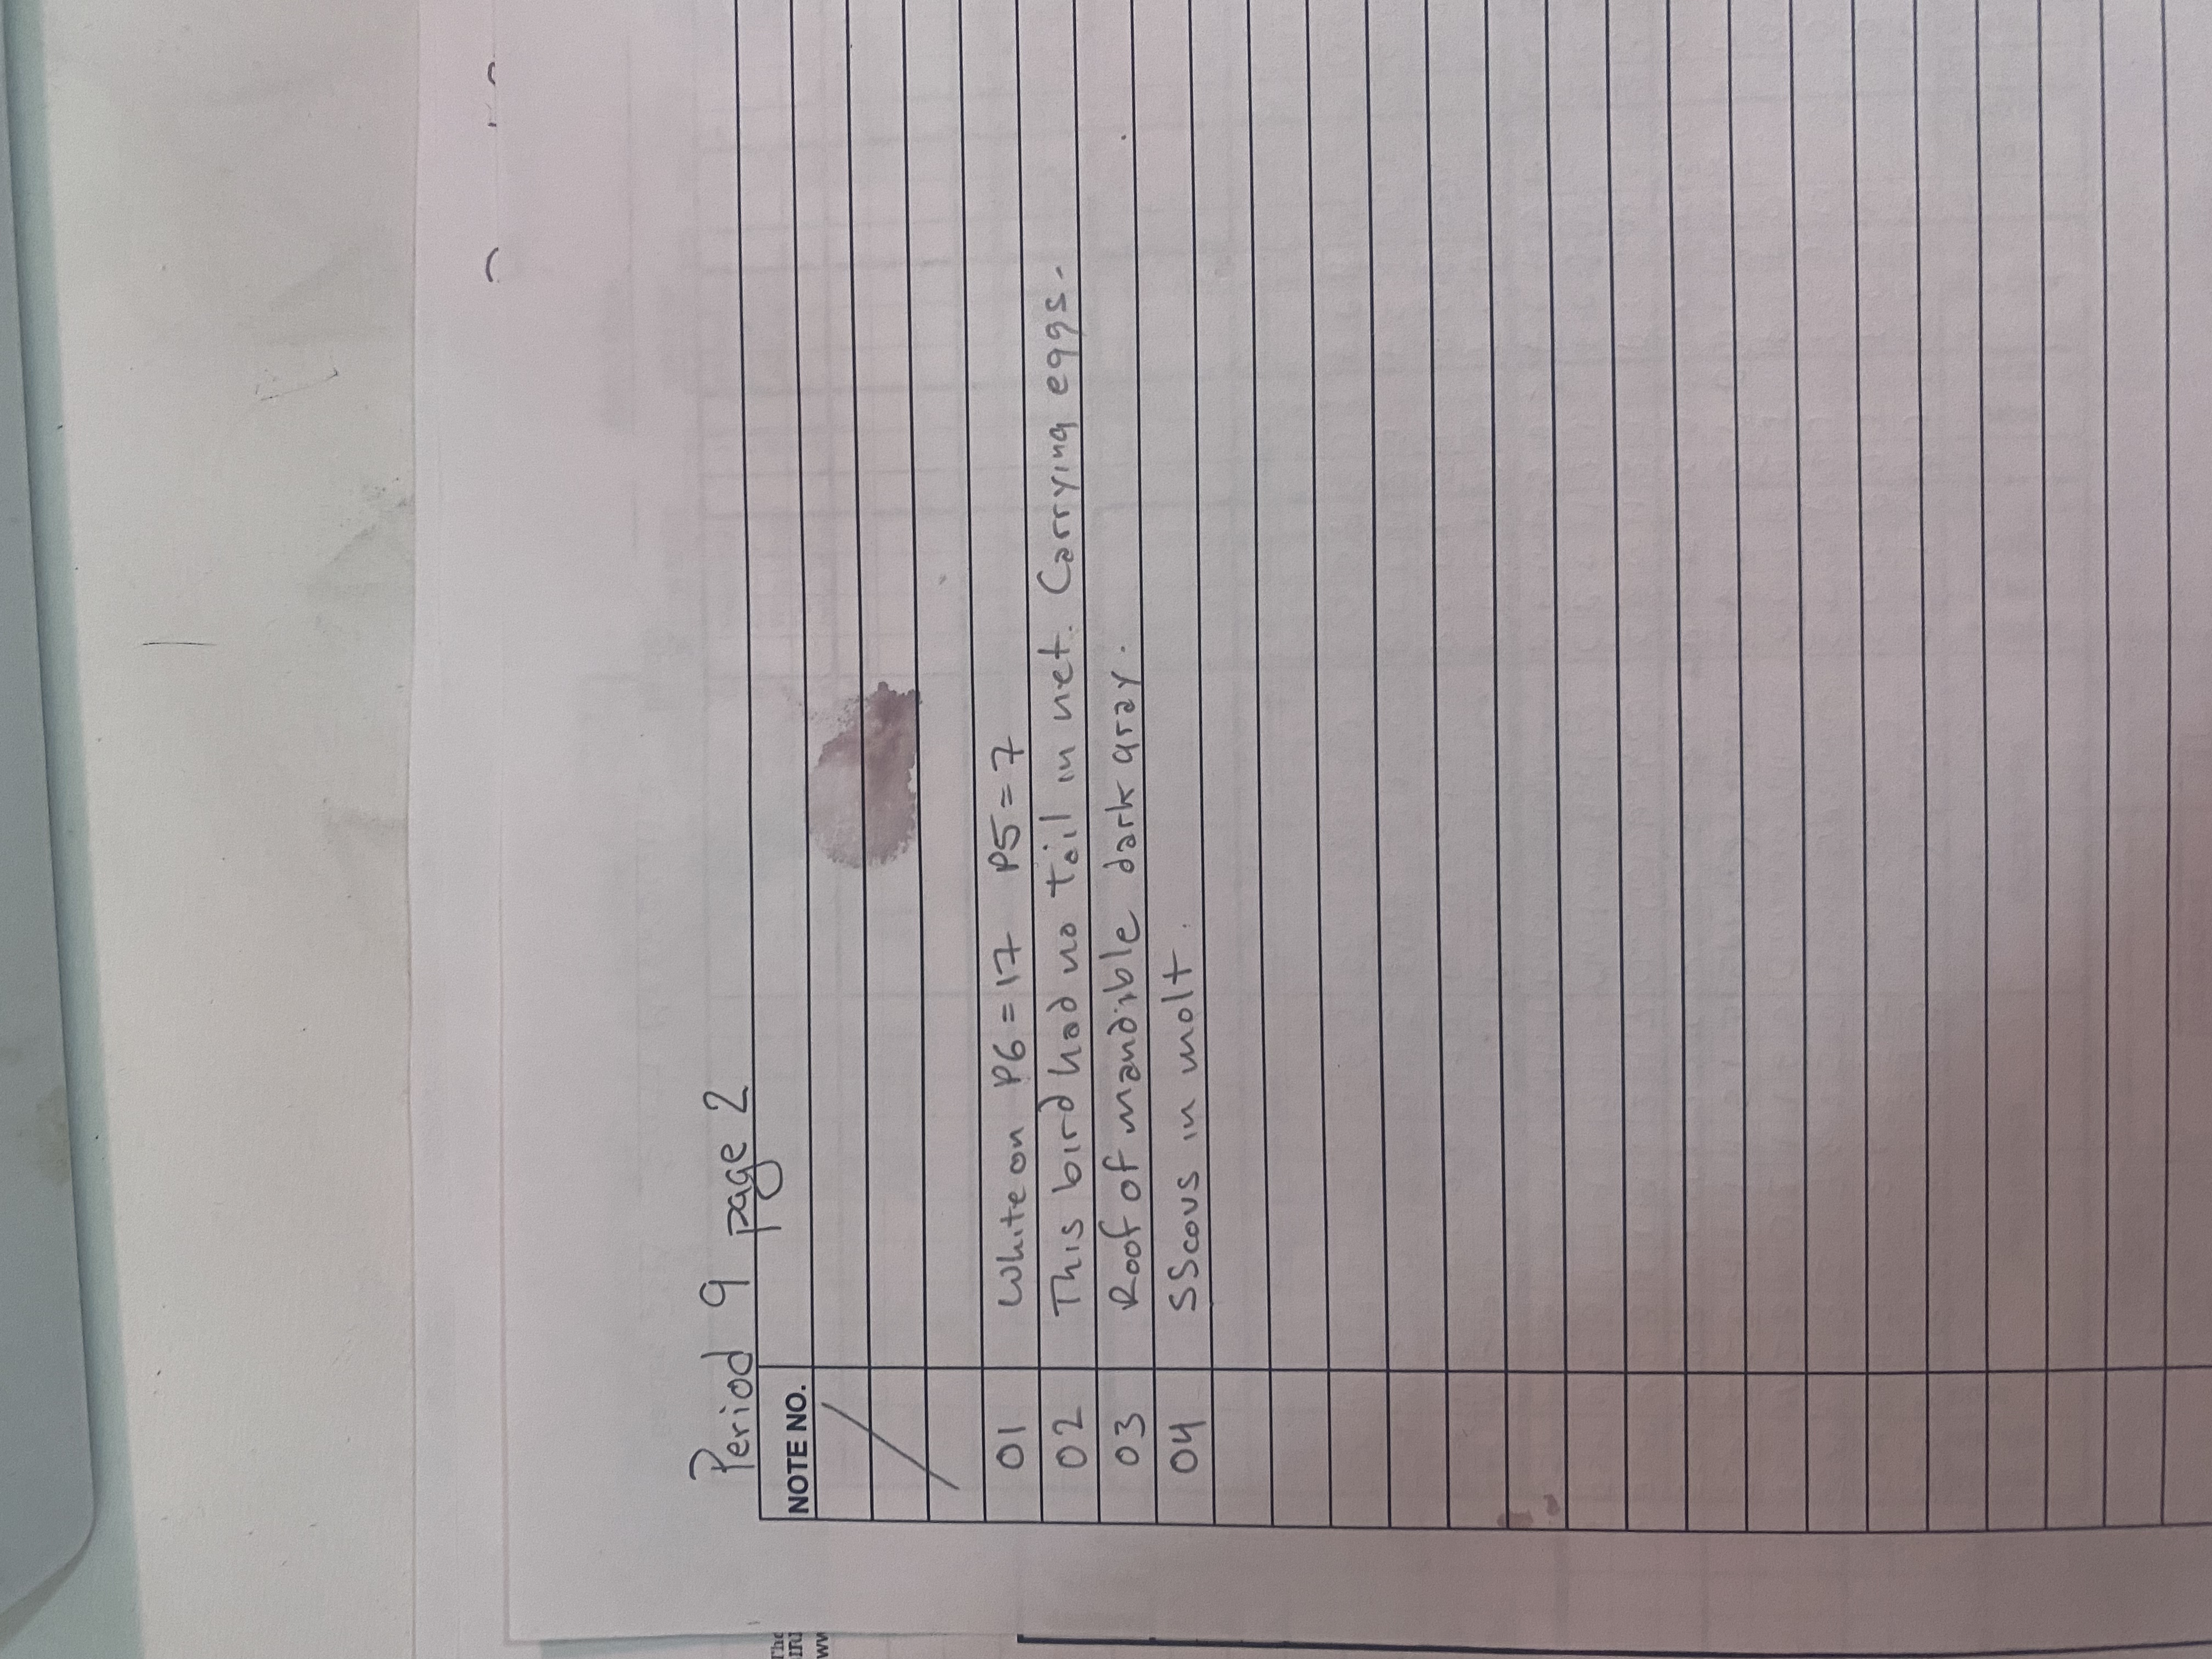 Period 9 page 2
NOTE NO.
01 White on P6 = 17 P5 = 7
02 This bird had no tail in net. Carrying eggs.
03 Roof of mandible dark gray.
04 SScovs in molt.